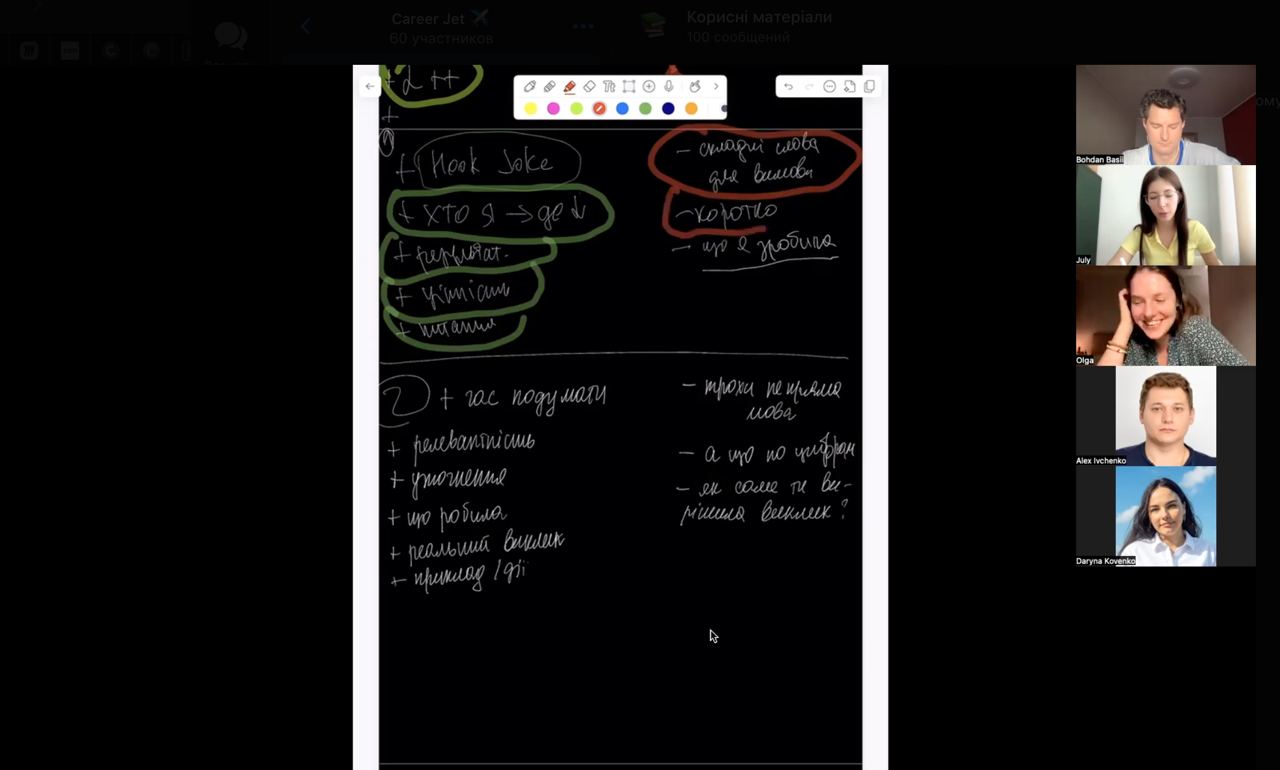 Career Jet ✈️
60 участников
Корисні матеріали
100 сообщений
+ 2 ++
+
+ Hook Joke
+ хто я → де ↓
+ результат.
+ цінність
+ питання
- складні слова
для вимови
- коротко
- що я зробила
2 + час подумати
+ релевантність
+ уточнення
+ що робила
+ реальний виклик
+ приклад / дії
- трохи не пряма
мова
- а що по цифрам
- як саме ти ви-
рішила виклик?
Bohdan Basii
July
Olga
Alex Ivchenko
Daryna Kovenko